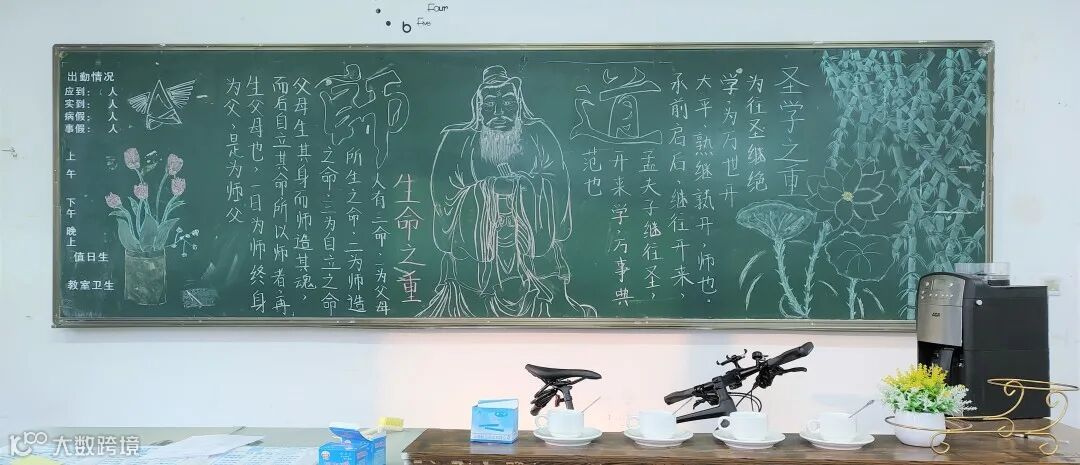 Four
Five
圣学之重
为往圣继绝
学,为万世开
大平,熟继熟开,师也.
承前启后,继往开来,
道
孟夫子继往圣,
开来学,万事典
范也
生命之重
师
人有三命,一为父母
所生之命,二为师造
之命,三为自立之命
父母生其身而师造其魂,
而后自立其命所以师者,再
生父母也,一日为师终身
为父,是为师父
出勤情况
应到: 人
实到: 人
病假: 人
事假: 人
上午
下午
晚上
值日生
教室卫生
大数跨境